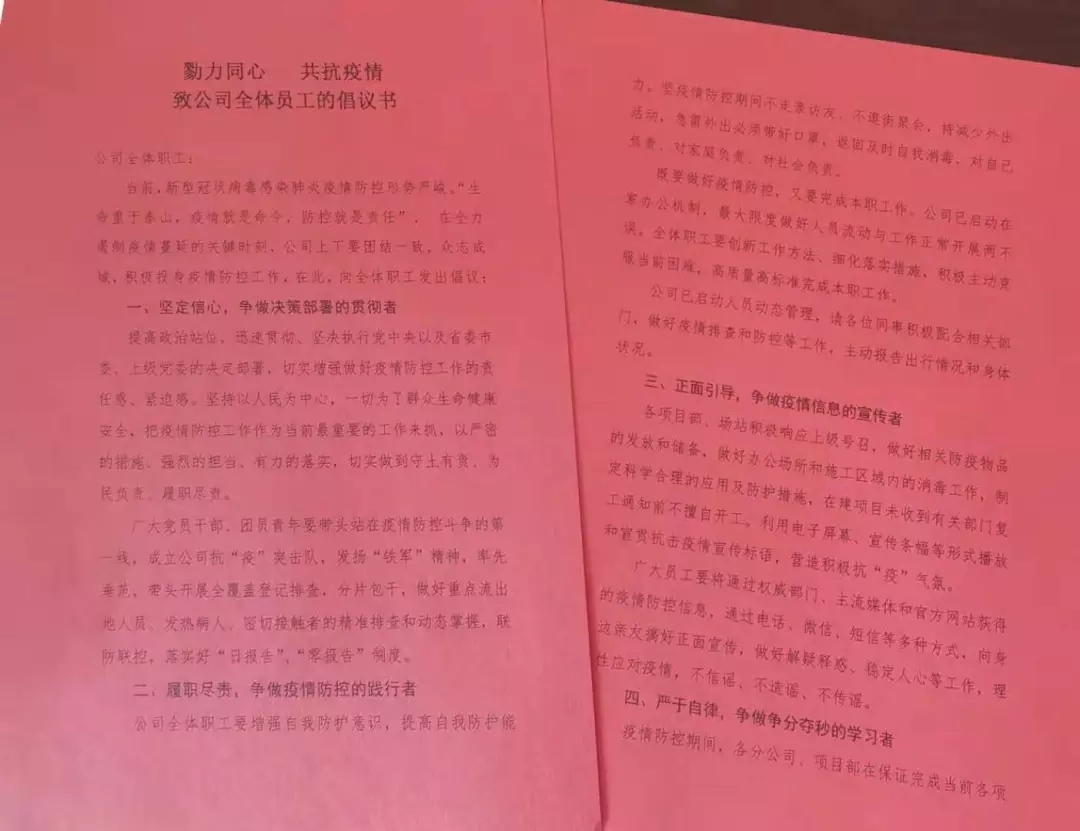 勠力同心 共抗疫情
致公司全体员工的倡议书
公司全体职工：
当前，新型冠状病毒感染肺炎疫情防控形势严峻。“生
命重于泰山，疫情就是命令，防控就是责任”，在全力
遏制疫情蔓延的关键时刻，公司上下要团结一致，众志成
城，积极投身疫情防控工作，在此，向全体职工发出倡议：
一、坚定信心，争做决策部署的贯彻者
提高政治站位，迅速贯彻、坚决执行党中央以及省委市
委、上级党委的决定部署，切实增强做好疫情防控工作的责
任感、紧迫感。坚持以人民为中心，一切为了群众生命健康
安全，把疫情防控工作作为当前最重要的工作来抓，以严密
的措施、强烈的担当、有力的落实，切实做到守土有责、为
民负责、履职尽责。
广大党员干部、团员青年要带头站在疫情防控斗争的第
一线，成立公司抗“疫”突击队，发扬“铁军”精神，率先
垂范，带头开展全覆盖登记排查，分片包干，做好重点流出
地人员、发热病人、密切接触者的精准排查和动态掌握，联
防联控，落实好“日报告”、“零报告”制度。
二、履职尽责，争做疫情防控的践行者
公司全体职工要增强自我防护意识，提高自我防护能
力。坚疫情防控期间不走亲访友、不逛街聚会，持减少外出
活动，急需外出必须带好口罩，返回及时自我消毒，对自己
负责、对家庭负责、对社会负责。
既要做好疫情防控，又要完成本职工作。公司已启动在
家办公机制，最大限度做好人员流动与工作正常开展两不
误。全体职工要创新工作方法、细化落实措施，积极主动克
服当前困难，高质量高标准完成本职工作。
公司已启动人员动态管理，请各位同事积极配合相关部
门，做好疫情排查和防控等工作，主动报告出行情况和身体
状况。
三、正面引导，争做疫情信息的宣传者
各项目部、场站积极响应上级号召，做好相关防疫物品
的发放和储备，做好办公场所和施工区域内的消毒工作，制
定科学合理的应用及防护措施，在建项目未收到有关部门复
工通知前不擅自开工。利用电子屏幕、宣传条幅等形式播放
和宣贯抗击疫情宣传标语，营造积极抗“疫”气氛。
广大员工要将通过权威部门、主流媒体和官方网站获得
的疫情防控信息，通过电话、微信、短信等多种方式，向身
边亲友搞好正面宣传，做好解疑释惑、稳定人心等工作，理
性应对疫情，不信谣、不造谣、不传谣。
四、严于自律，争做争分夺秒的学习者
疫情防控期间，各分公司、项目部在保证完成当前各项